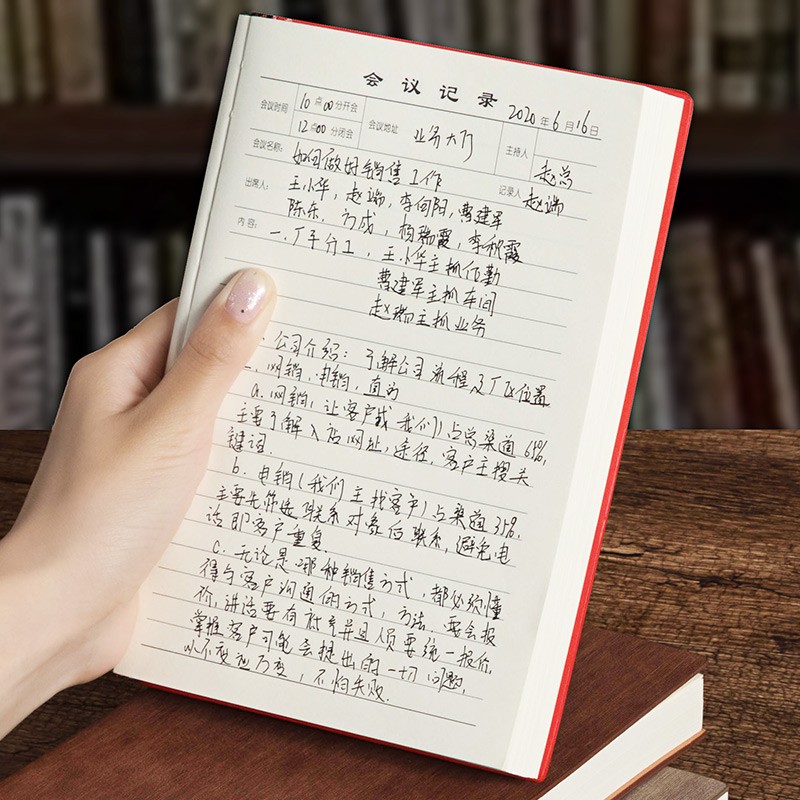 会议记录
2020年6月16日
会议时间 10点00分开会 会议地址 业务大厅 主持人 赵总
12点00分闭会
会议名称: 如何做好销售工作 记录人 赵端
出席人: 王小华, 赵端, 李向阳, 曹建军
陈东, 方成, 杨瑞霞, 李秋霞
内容: 一. 厂子分工, 王小华主抓后勤
曹建军主抓车间
赵瑞主抓业务
公司介绍: 了解公司流程及厂区位置
网销, 电销, 直访
a. 网销, 让客户找我们) 占总渠道65%,
主要了解入站网址, 途径, 客户主搜关
键词.
b. 电销(我们主找客户) 占渠道35%,
主要先筛选联系对象后联系, 避免电
话即客户重复.
C. 无论是哪种销售方式, 都必须懂
得与客户沟通的方式, 方法. 要会报
价, 讲话要有 并且人员要统一报价,
掌握客户可能会提出的一切问题,
以不变应万变, 不怕失败.